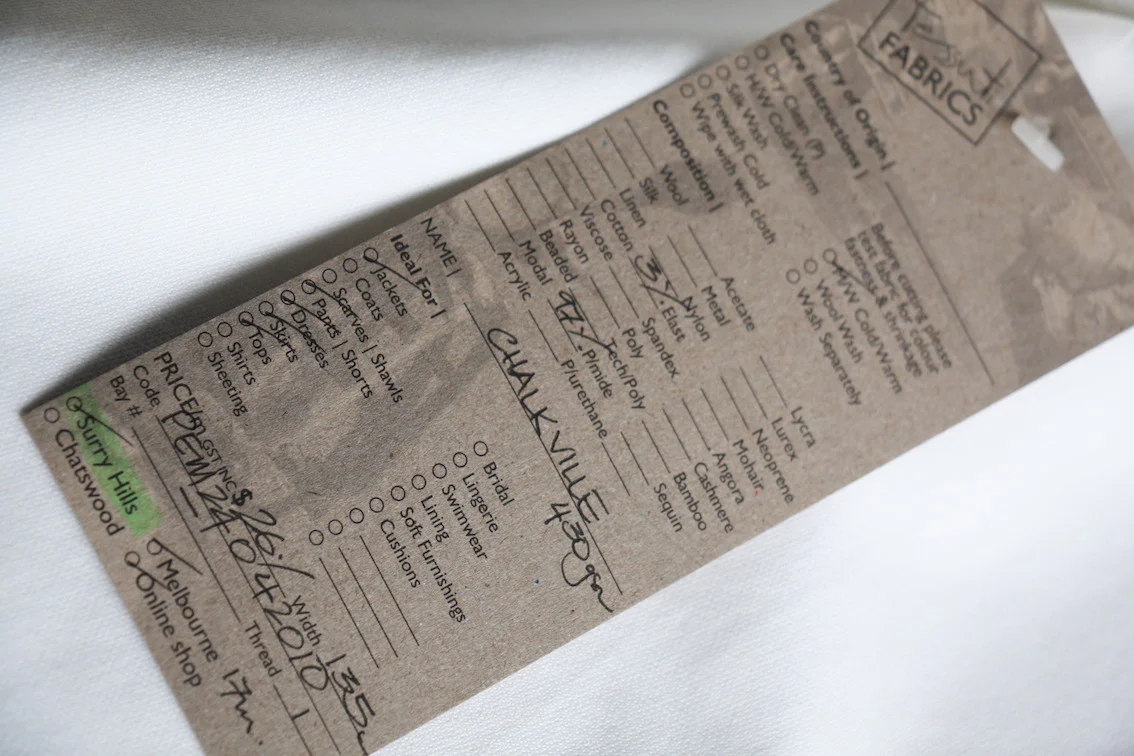 Tessuti
FABRICS
Country of Origin |
Care Instructions |
Dry Clean (P)
H/W Cold/Warm
Silk Wash
Prewash Cold
Wipe with wet cloth
Before cutting please
test fabric for colour
fastness & shrinkage
H/W Cold/Warm
Wool Wash
Wash Separately
Composition |
Wool
Silk
Linen
Cotton
Viscose
Rayon
Beaded
Modal
Acrylic
Acetate
Metal
Nylon
3% Elast
Spandex
Poly
Tech/Poly
97% P/mide
P/urethane
Lycra
Lurex
Neoprene
Mohair
Angora
Cashmere
Bamboo
Sequin
NAME | CHALKVILLE
430gsm
Ideal For |
Jackets
Coats
Scarves | Shawls
Pants | Shorts
Dresses
Skirts
Tops
Shirts
Sheeting
Bridal
Lingerie
Swimwear
Lining
Soft Furnishings
Cushions
PRICE GST INC $26.- Width 135
Code
Thread 1
Bay #
Surry Hills
Chatswood
Melbourne 17m.
Online shop